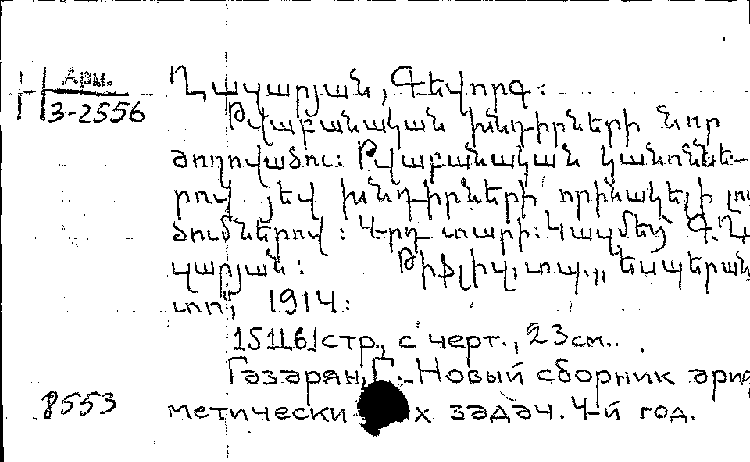 Арм.
Н 3-2556
Ղազարյան, Գեվորգ:
Թվաբանական խնդիրների նոր
ժողովածու: Թվաբանական կանոննե-
րով յեվ խնդիրների որինակելի լու
ծումներով: 4-րդ տարի: Կազմեց Գ. Ղա
զարյան: Թիֆլիս, տպ. „Եսպերան
տո", 1914:
151[6]стр., с черт., 23см..
Газарян, Г.-Новый сборник ариф
8553 метически х задач. 4-й год.